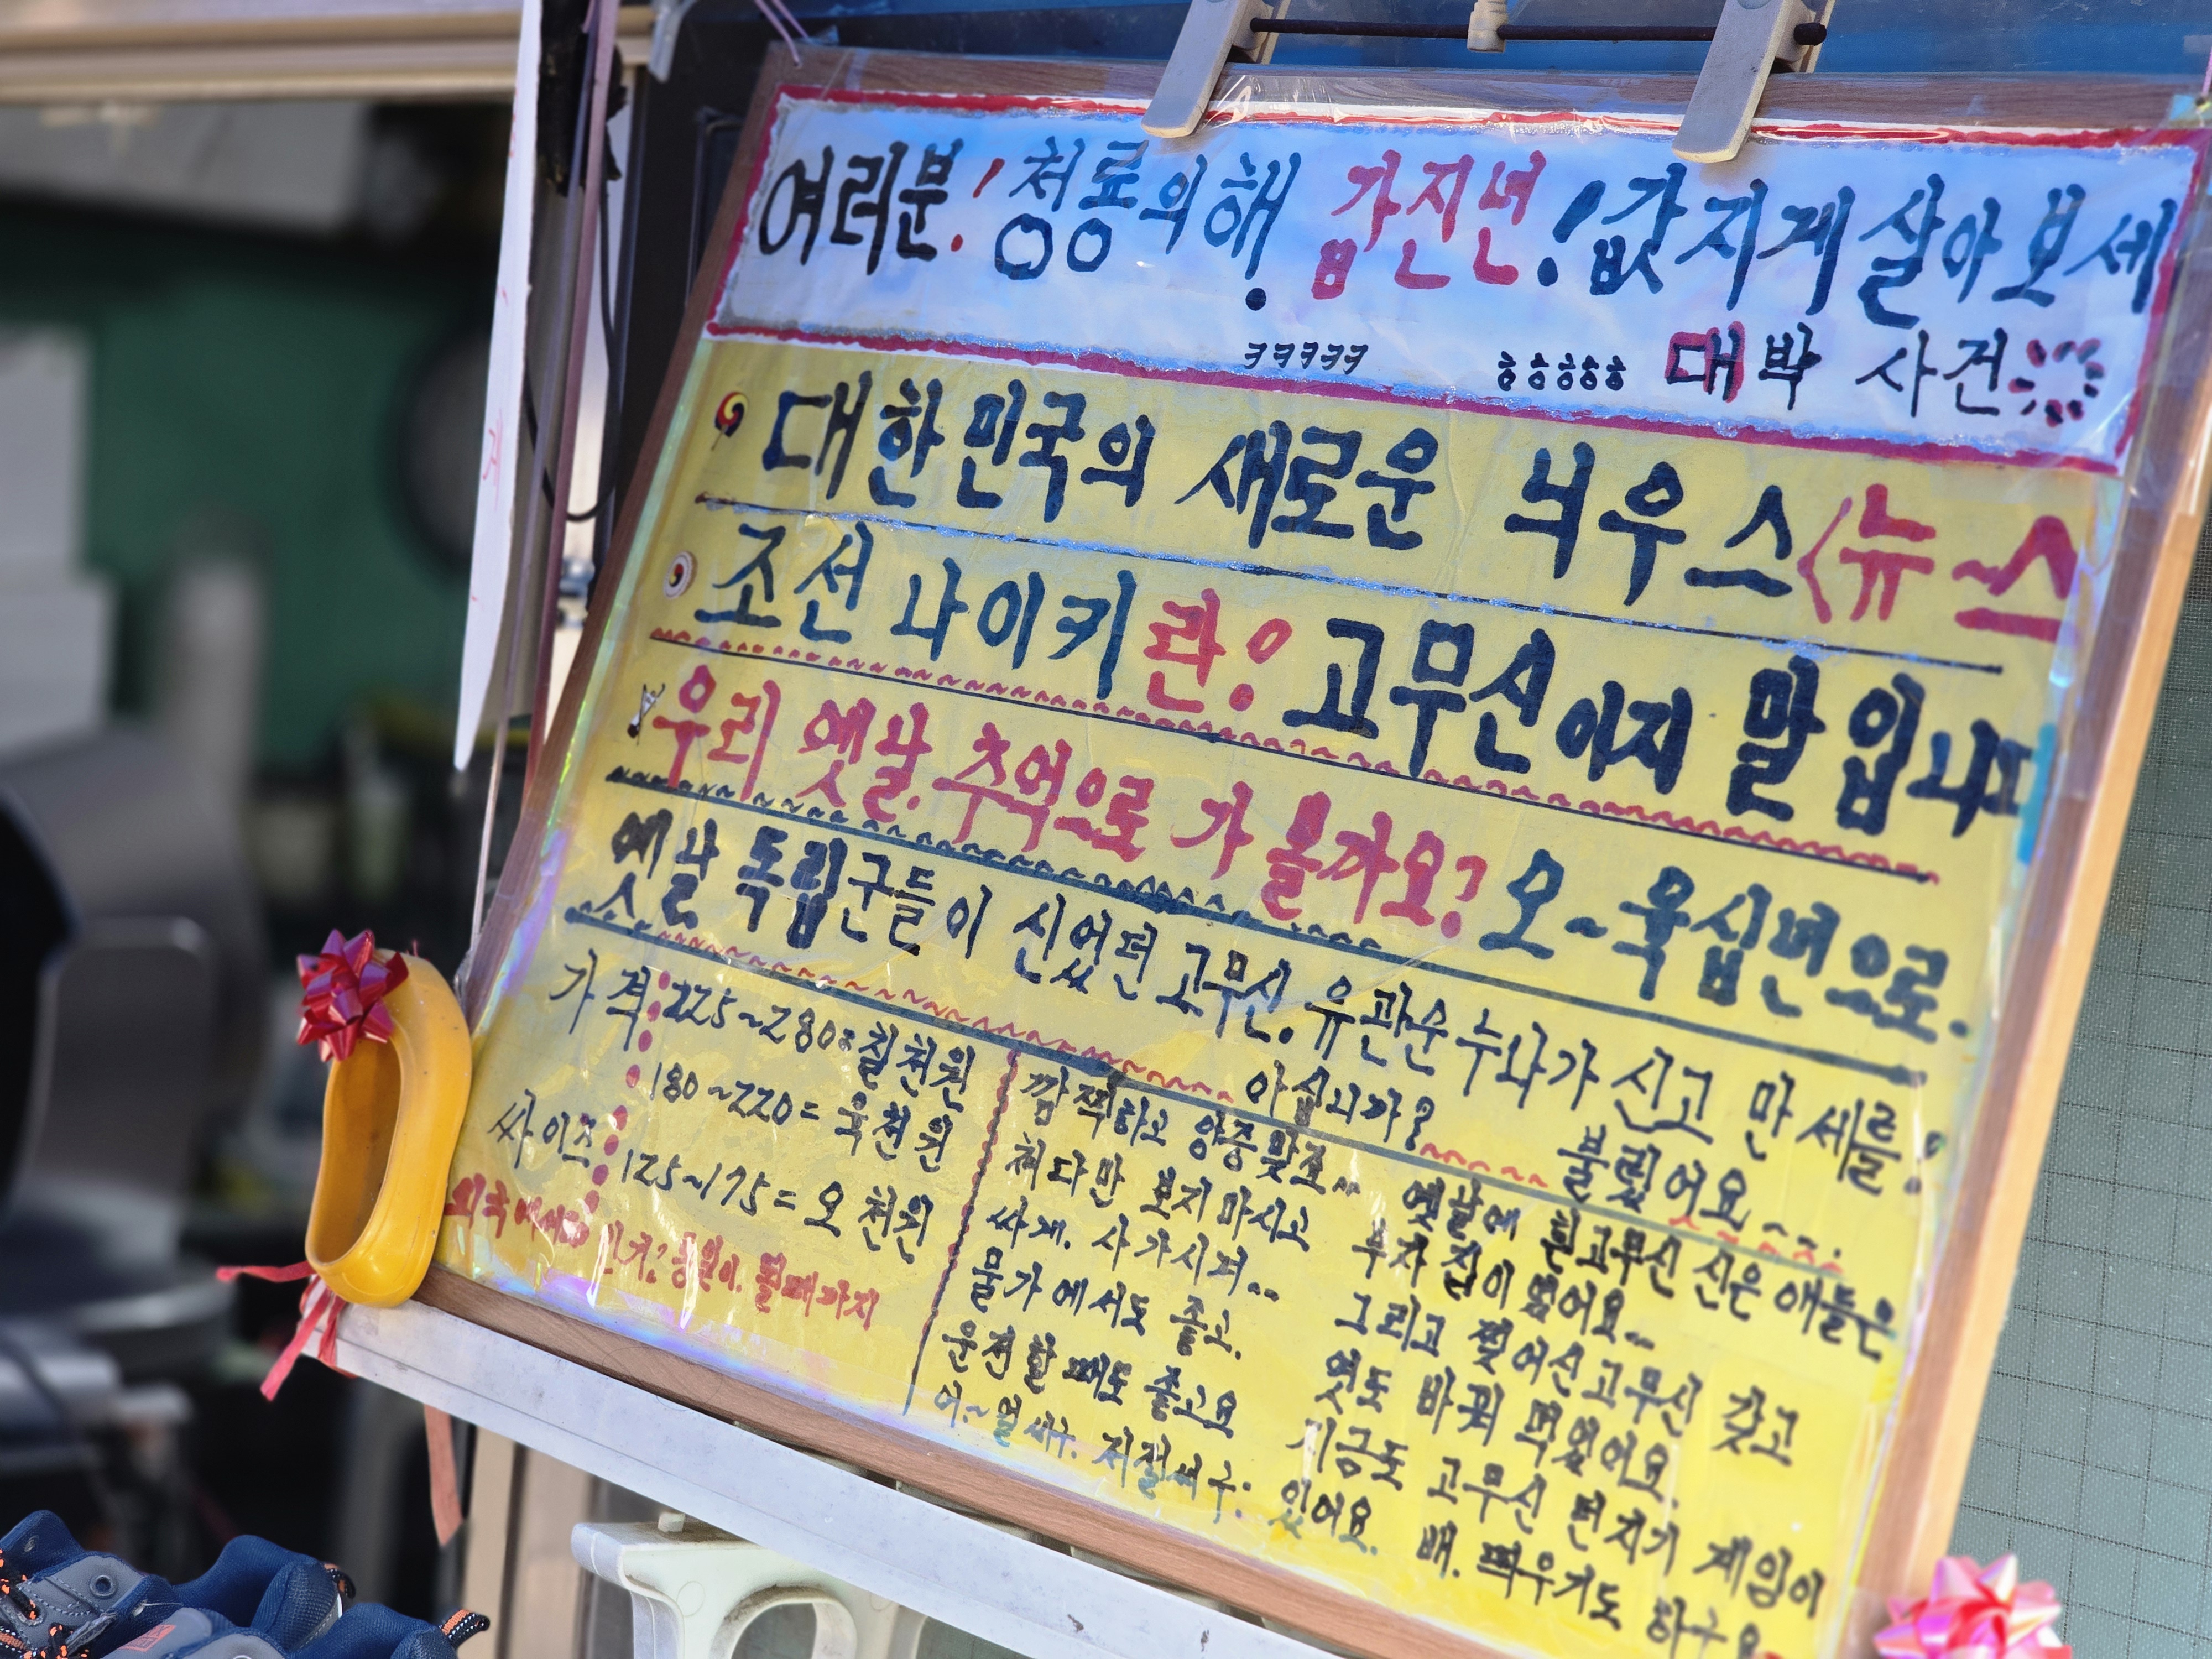 여러분! 청룡의해 갑진년! 값지게 살아보세
ㅋㅋㅋㅋㅋ ㅎㅎㅎㅎㅎ 대박 사건
대한민국의 새로운 늬우스<뉴~스
조선나이키란? 고무신이지 말입니다
우리 옛날 추억으로 가 볼까요? 오~육십년으로.
옛날 독립군들이 신었던 고무신. 유관순 누나가 신고 만세를
아십니까? 불렀어요~
가격: 225~280=칠천원
180~220=육천원
싸이즈: 125~175=오천원
인기? 통일이. 될때까지
깜찍하고 앙증맞죠..
쳐다만 보지마시고
싸게. 사가시며..
물가에서도 좋고.
운전할때도 좋고요
어~얼씨구. 저절씨구.
옛날에 흰고무신 신은 애들은
부자 집이 였어요..
그리고 찢어신고무신 갖고
엿도 바꿔 먹었어요.
지금도 고무신 던지기 게임이
있어요. 배. 띄우기도 하구요